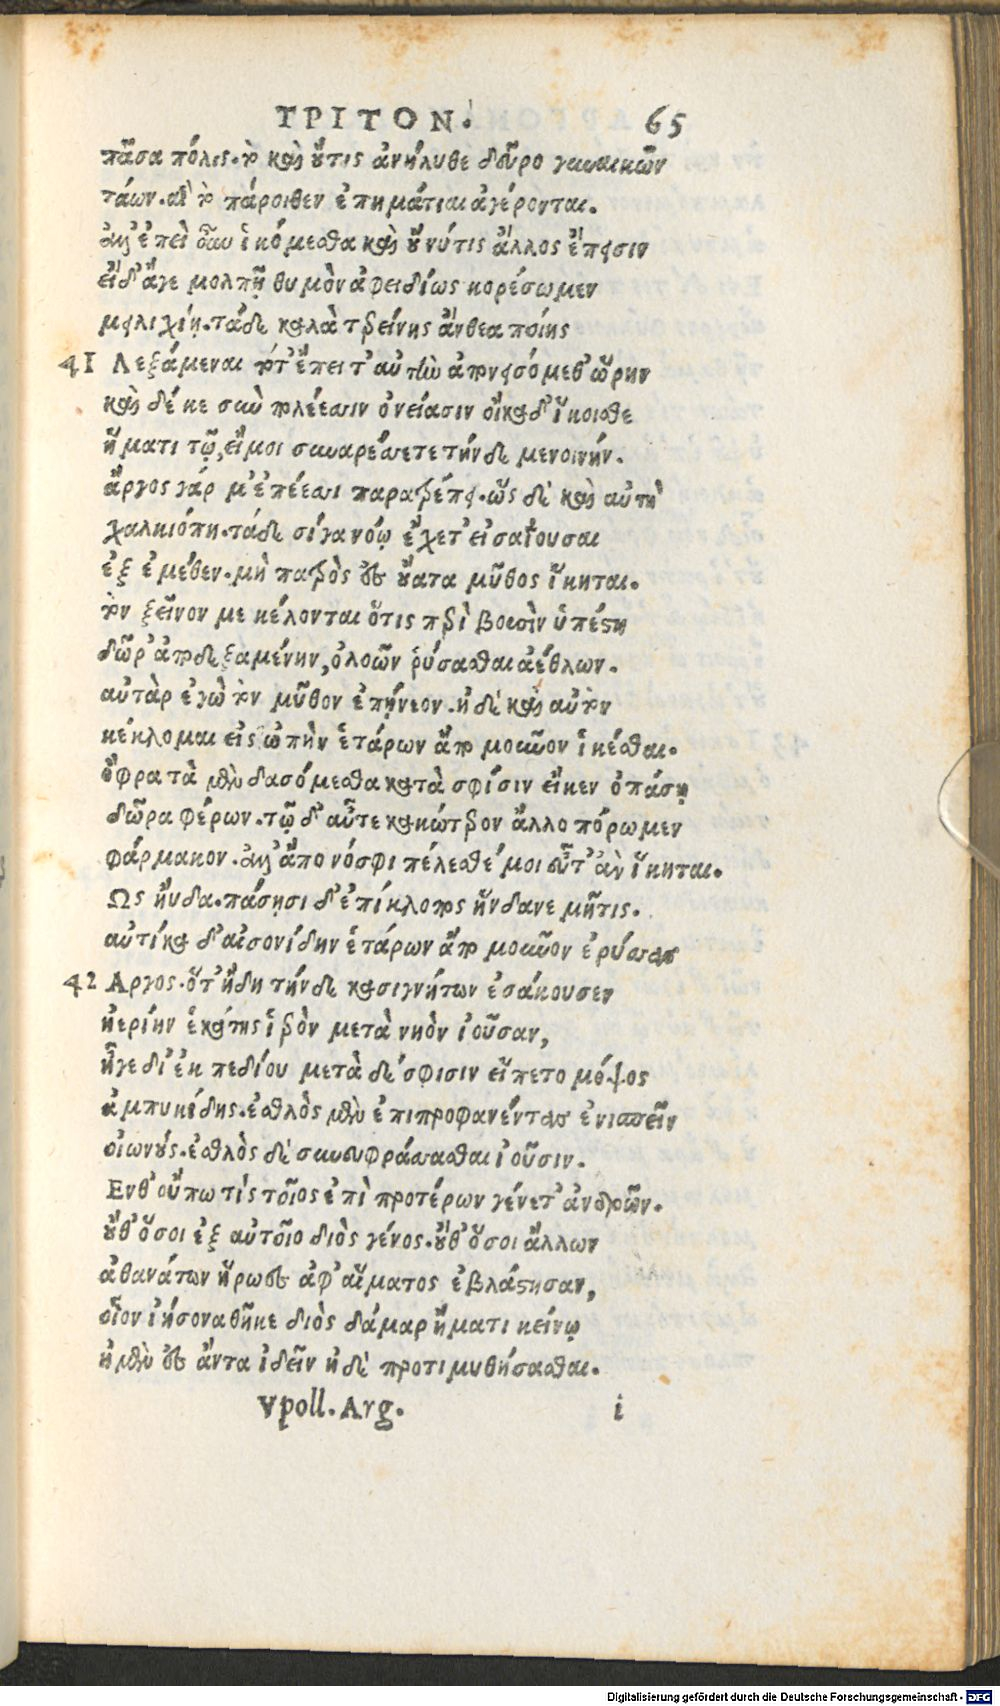 ΤΡΙΤΟΝ. 65
πᾶσα πόλις. τὸ καὶ οὔτις ἀνήλυθε δεῦρο γυναικῶν
τάων. αἳ τὸ πάροιθεν ἐπημάτιαι ἀγέρονται.
ἀλλ' ἐπεὶ οὖν ἱκόμεσθα καὶ οὔ νύτις ἄλλος ἔπεισιν
εἰ δ' ἄγε μολπῇ θυμὸν ἀφειδίως κορέσωμεν
μειλιχίῃ. τάδε καλὰ τερείνης ἄνθεα ποίης
41 Λεξάμεναι τότ' ἔπειτ' αὐτὴν ἀπονεισόμεθ' ὥρην
καὶ δέ κε σὺν πολέεσιν ὀνείασιν οἴκαδ' ἵκοισθε
ἤματι τῷ, εἴ μοι συναρέσετε τήνδε μενοινήν.
ἄργος γάρ μ' ἐπέεσι παρατρέπει. ὣς δὲ καὶ αὐτὴ
χαλκιόπη. τάδε σῖγα νόῳ ἔχετ' εἰσαΐουσαι
ἐξ ἐμέθεν. μὴ πατρὸς ἐς οὔατα μῦθος ἵκηται.
τὸν ξεῖνόν με κέλονται ὅτις περὶ βουσὶν ὑπέστη
δῶρ' ἀποδεξαμένην, ὀλοῶν ῥύσασθαι ἀέθλων.
αὐτὰρ ἐγὼ τὸν μῦθον ἐπῄνεον. ἠδὲ καὶ αὐτὸν
κέκλομαι εἰς ὠπὴν ἑτάρων ἄπο μοῦνον ἱκέσθαι.
ὄφρα τὰ μὲν δασόμεσθα κατὰ σφίσιν εἴκεν ὀπάσῃ
δῶρα φέρων. τῷ δ' αὖτε κακώτερον ἄλλο πόρωμεν
φάρμακον. ἀλλ' ἄπο νόσφι πέλεσθέ μοι εὖτ' ἂν ἵκηται.
Ως ηὔδα. πάσῃσι δ' ἐπίκλοπος ἥνδανε μῆτις.
αὐτίκα δ' αἰσονίδην ἑτάρων ἄπο μοῦνον ἐρύσας
42 Αργος. ὅτ' ἤδη τήνδε κασιγνήτων ἐσάκουσεν
ἠερίην ἑκάτης ἱερὸν μετὰ νηὸν ἰοῦσαν,
ἦγε δι' ἐκ πεδίου μετὰ δέ σφισιν εἵπετο μόψος
ἀμπυκίδης. ἐσθλὸς μὲν ἐπιπροφανέντας ἐνισπεῖν
οἰωνούς. ἐσθλὸς δὲ συνευφράσασθαι ἰοῦσιν.
Ενθ' οὔπω τὶς τοῖος ἐπὶ προτέρων γένετ' ἀνδρῶν.
οὔθ' ὅσοι ἐξ αὐτοῖο διὸς γένος. οὔθ' ὅσοι ἄλλων
ἀθανάτων ἥρωες ἀφ' αἵματος ἐβλάστησαν,
οἷον ἰήσονα θῆκε διὸς δάμαρ ἤματι κείνῳ
ἠμὲν ἐς ἄντα ἰδεῖν ἠδὲ προτιμυθήσασθαι.
Vpoll. Arg. i
Digitalisierung gefördert durch die Deutsche Forschungsgemeinschaft - DFG